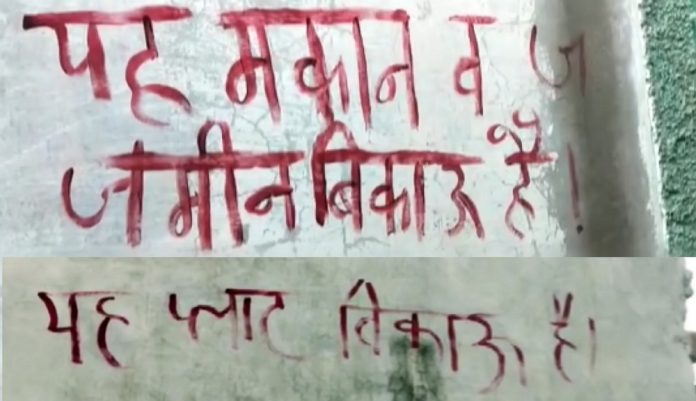 यह मकान व ज
जमीन बिकाऊ है!
यह प्लाट बिकाऊ है।